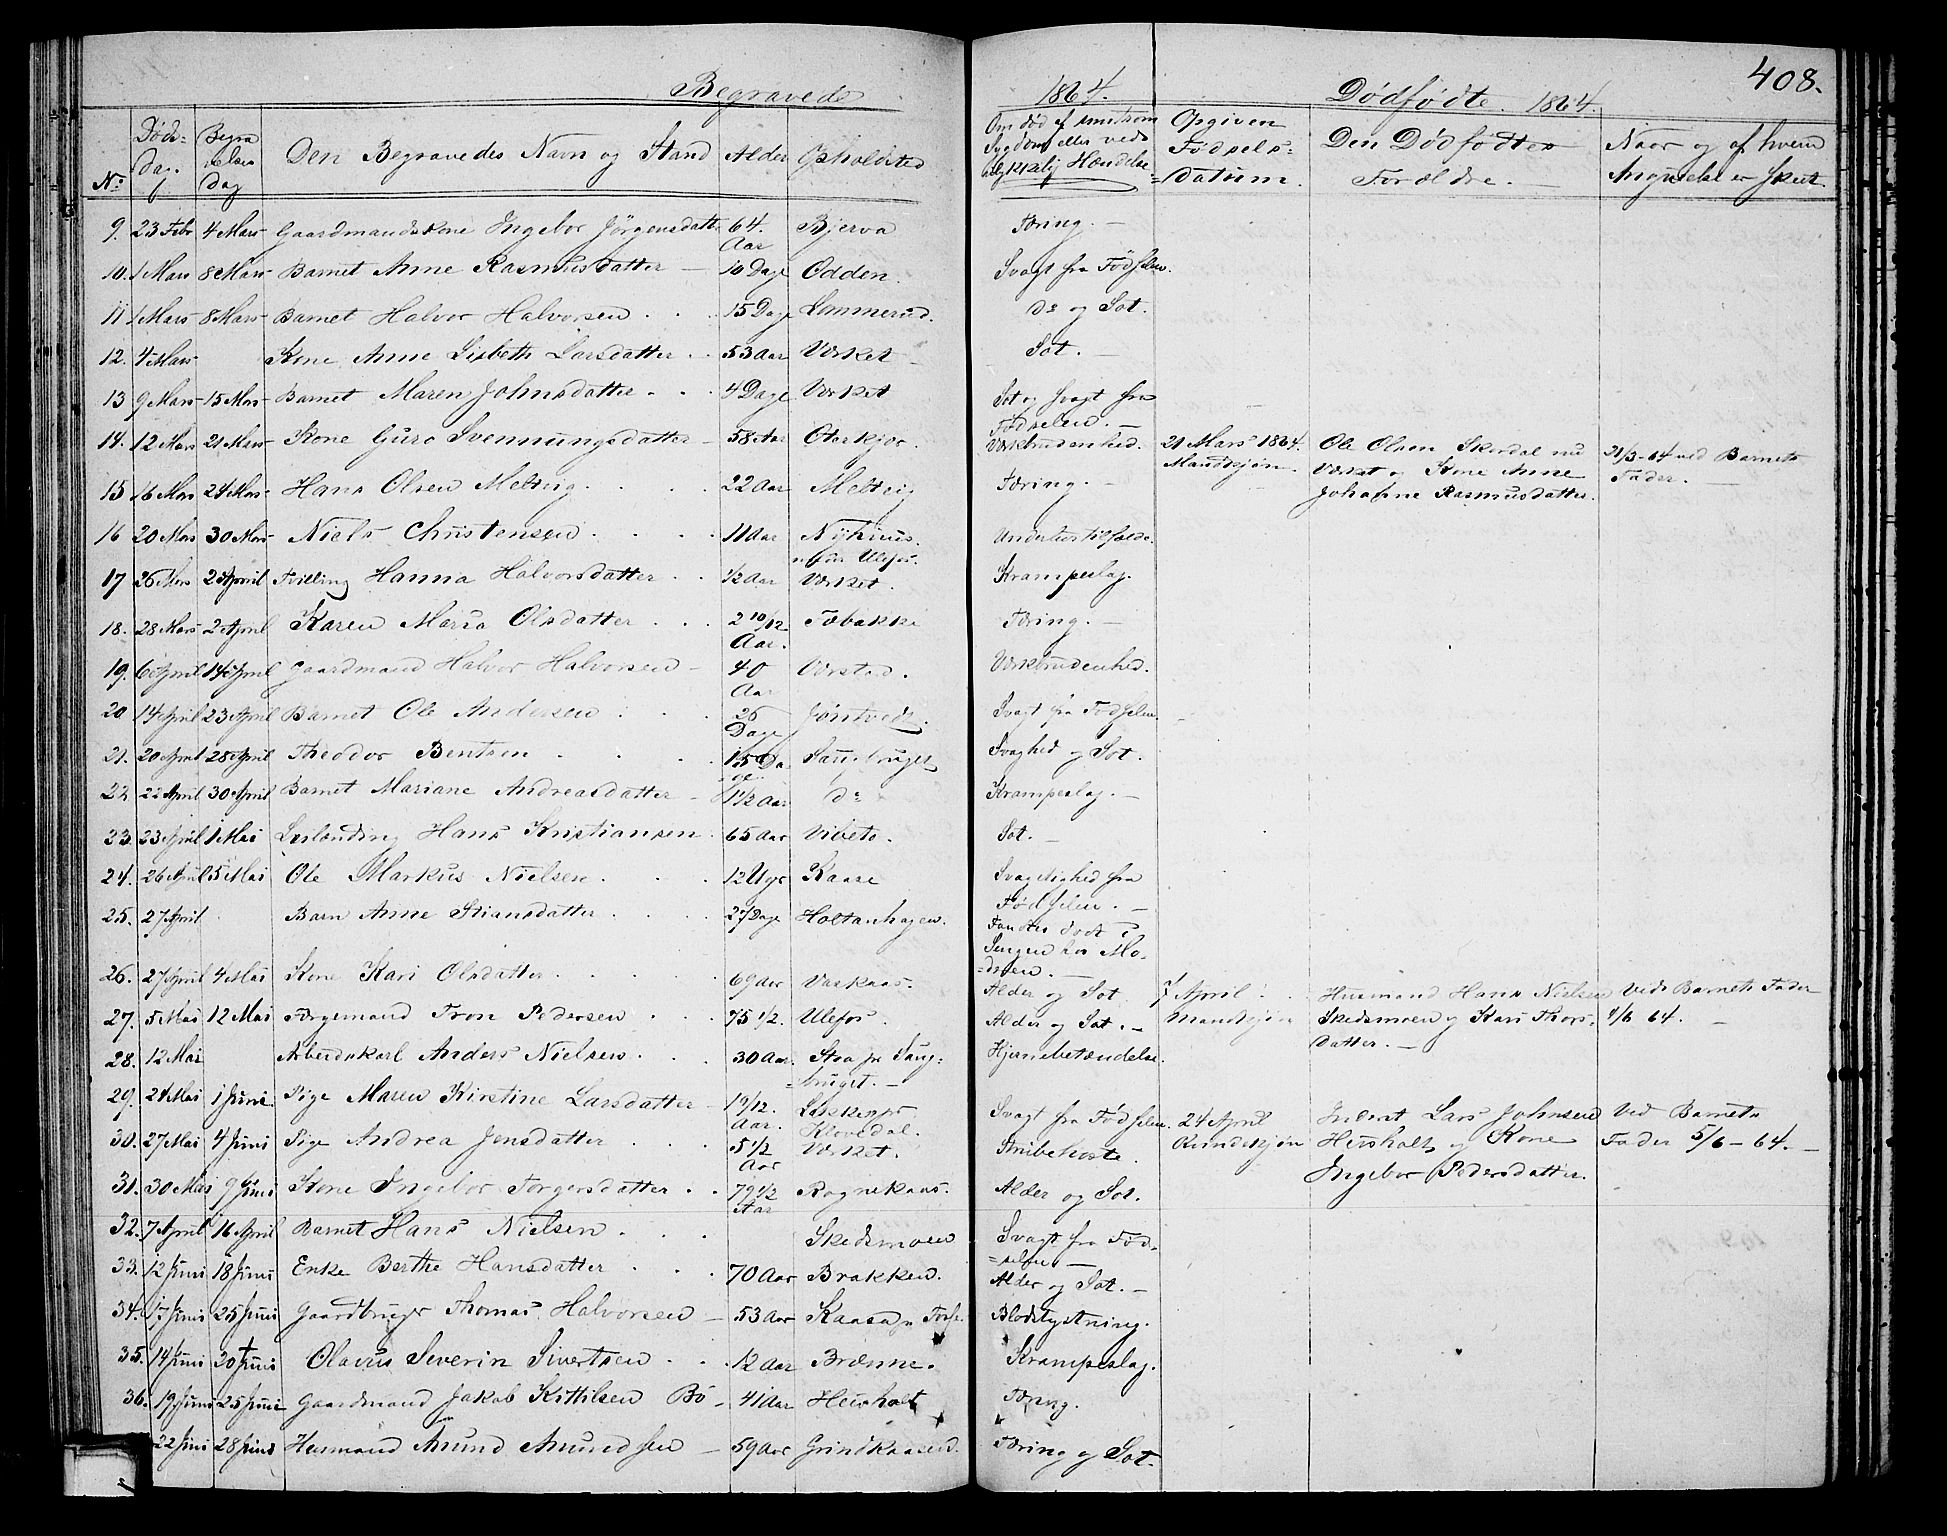 Begravede 1864. Dødfødte. 1864. 408.
No Døds-Dag. Begravelses Dag Den Begravedes Navn og Stand Alder Opholdsted Om død af smitsom Sygdom eller ved ulykkelig Hændelse Opgiven Fødsels-Datum. Den Dødfødtes Forældre. Naar og af hvem Angivelse er skeet
9. 23 Febr 4 Mars Gaardmandskone Ingebor Jörgensdatt 64. Aar Bjerva Tæring.
10. 1 Mars 8 Mars Barnet Anne Rasmusdatter 10 Dage Odden. Svagt fra Födselen.
11 1 Mars 8 Mars Barnet Halvor Halvorsen 15 Dage Lommerud. do og Sot.
12. 4 Mars Kone Anne Lisbeth Larsdatter 53 Aar Værket Sot.
13 9 Mars 15 Mars Barnet Maren Johnsdatter 4 Dage Værket Sot og svagt fra Födselen.
14. 12 Mars 21 Mars Kone Guro Svennungsdatter 58 Aar Oterkjær Værkbrudenhed. 21 Mars 1864. Mandkjøn. Ole Olsen Skardal ved Værket og Kone Anne Johanne Rasmusdatter. 21/3-64 ved Barnets Fader.
15 16 Mars 24 Mars Hans Olsen Melteig 22 Aar Melteig Tæring.
16 20 Mars 30 Mars Niels Christensen 11 Aar Nyhuus. Ulefos. Underlivstilfælde.
17 26 Mars 2 April Tvilling Hanna Halvorsdatter 1/2 Aar Værket. Krampeslag.
18. 28 Mars 2 April Karen Maria Olsdatter 2 10/12 Aar. Tæbakke Tæring.
19. 6 April 14 April Gaardmand Halvor Halvorsen 40 AarVærstad. Værkbrudenhed.
20 14 April 23 April Barnet Ole Andersen 26 Dage Jöntvedt. Svagt fra Födselen.
21. 20 April 28 April Theodor Bentsen 15 Dage Saugbruget Svaghed og Sot.
22 22 April 30 April Barnet Mariane Andreasdatter 1 1/2 Aar do Krampeslag.
23. 23 April 1 Mai Hans Kristiansen 65 Aar Vibeto. Sot.
24. 26 April 5 Mai Ole Markus Nielsen 12 Uger Kaase Svagelighed fra Födselen.
25. 27 April Barn Anne Stiansdatter 27 Dage Holtanhagen. Fandtes dødt i Sengen hos Moderen.
26. 27 April 4 Mai Kone Kari Olsdatter 69 Aar Vaskaas. Alder og Sot. 7 April Mandkjøn Husmand Hans Nielsen Skedsmoen og Kari Thorsdatter. Ved Barnets Fader 1/6 64.
27. 5 Mai 12 Mai Tron Pedersen 75 1/2. Ulefos. Alder og Sot.
28. 12 Mai Arbeidskarl Anders Nielsen 30 Aar. Saugbruget. Hjernebetændelse.
29. 24 Mai 1 Juni. Pige Maren Kirstine Larsdatter Aar. Klovedal. Svagt fra Födselen. 24 April Kvindekjøn Inderst Lars Johnsen Heisholt og Kone Ingebor Pedersdatter. Ved Barnets Fader 5/6-64.
30. 27 Mai 4 Juni Pige Andrea Jensdatter 5 1/2 Aar Værket. Strubehoste.
31. 30 Mai 9 Juni Kone Ingebor Torgersdatter 79 1/2 Aar Rognekaas. Alder og Sot.
32. 7 April 16 April Barnet Hans Nielsen Skedsmoen Svagt fra Födselen
33. 12 Juni 18 Juni Enke Berthe Hansdatter 70 Aar Brakken. Alder og Sot.
34. 17 Juni 25 Juni Gaardbruger Thomas Halvorsen 53 Aar Kaasa Blodstyrtning.
35. 14 Juni 20 Juni Olavus Severin Sivertsen 12 Aar Brænne. Krampeslag.
36. 19 Juni 25 Juni Gaardmand Jakob Kittilsen Bö 41 Aar Heisholt Tæring.
22 Juni 28 Juni Husmand Amund Amundsen 59 Aar Grindkaasen. Tæring og Sot.